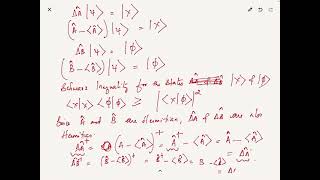 ΔÂ|ψ⟩ = |χ⟩
(Â-⟨Â⟩)|ψ⟩ = |χ⟩
ΔB̂|ψ⟩ = |ϕ⟩
(B̂-⟨B̂⟩)|ψ⟩ = |ϕ⟩
Schwarz Inequality for the states |χ⟩ & |ϕ⟩
⟨χ|χ⟩⟨ϕ|ϕ⟩ ≥ |⟨χ|ϕ⟩|²
Since Â and B̂ are Hermitian, ΔÂ & ΔB̂ are also
Hermitian:
ΔÂ† = (Â-⟨Â⟩)† = Â†-⟨Â⟩ = Â-⟨Â⟩ = ΔÂ
ΔB̂† = (B̂-⟨B̂⟩)† = B̂†-⟨B̂⟩ = B̂-⟨B̂⟩